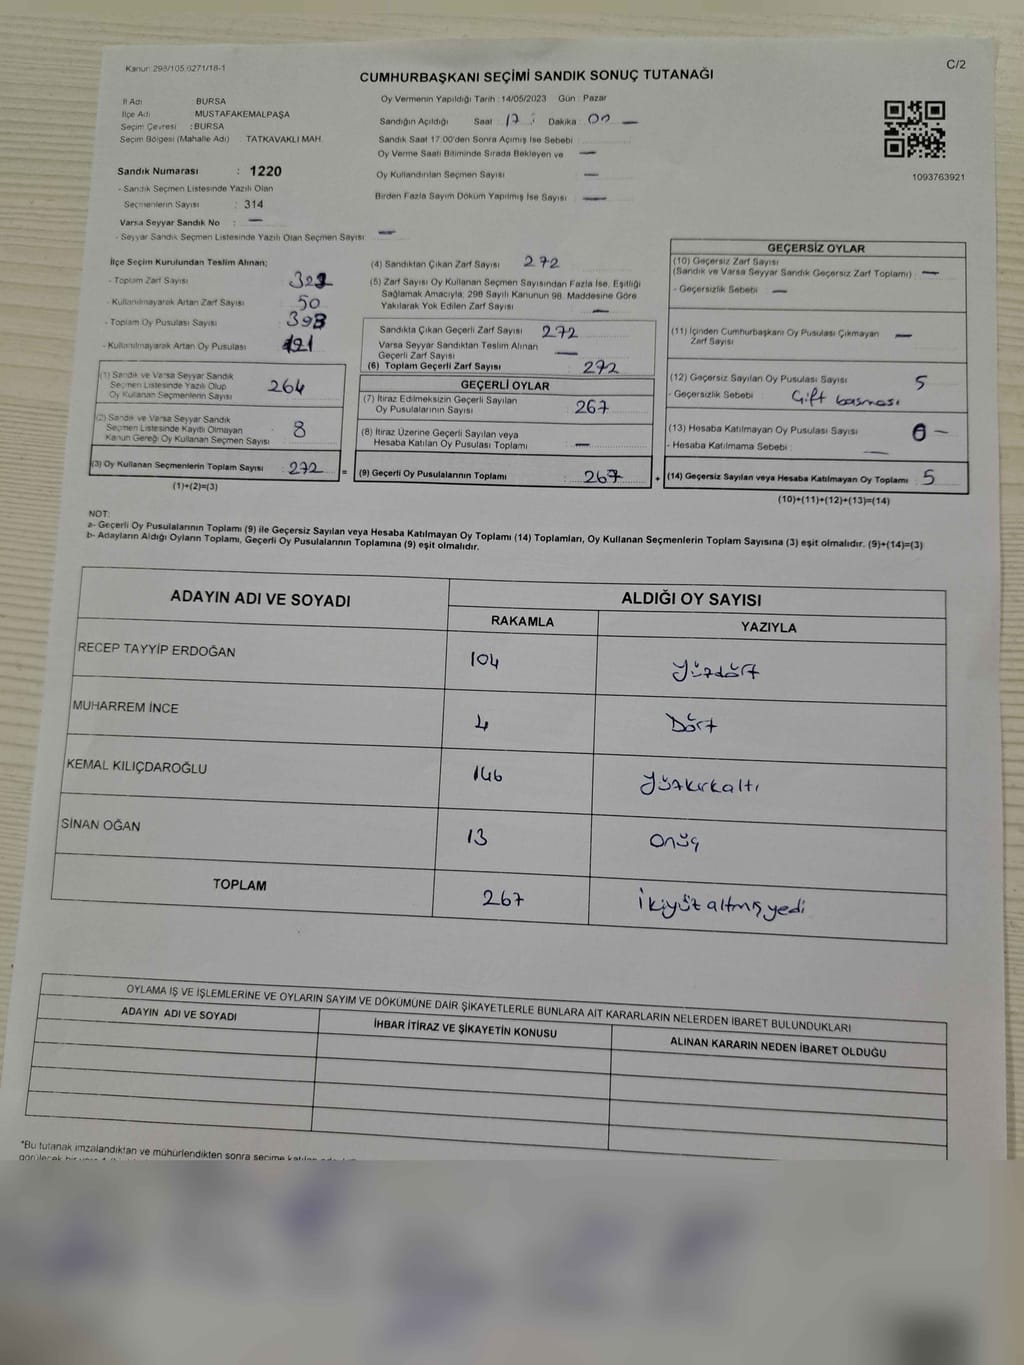 Kanun: 298/105,6271/18-1
C/2
CUMHURBAŞKANI SEÇİMİ SANDIK SONUÇ TUTANAĞI
İl Adı BURSA
İlçe Adı MUSTAFAKEMALPAŞA
Seçim Çevresi : BURSA
Seçim Bölgesi (Mahalle Adı) : TATKAVAKLI MAH.
Oy Vermenin Yapıldığı Tarih : 14/05/2023 Gün : Pazar
Sandığın Açıldığı Saat 17 : Dakika : 00 —
Sandık Saat 17:00'den Sonra Açımış İse Sebebi :
Oy Verme Saati Bitiminde Sırada Bekleyen ve —
Oy Kullandırılan Seçmen Sayısı —
Birden Fazla Sayım Döküm Yapılmış İse Sayısı : —
1093763921
Sandık Numarası : 1220
- Sandık Seçmen Listesinde Yazılı Olan
Seçmenlerin Sayısı : 314
Varsa Seyyar Sandık No : —
- Seyyar Sandık Seçmen Listesinde Yazılı Olan Seçmen Sayısı : —
İlçe Seçim Kurulundan Teslim Alınan;
- Toplam Zarf Sayısı
- Kullanılmayarak Artan Zarf Sayısı 50
- Toplam Oy Pusulası Sayısı 393
- Kullanılmayarak Artan Oy Pusulası 121
(1) Sandık ve Varsa Seyyar Sandık
Seçmen Listesinde Yazılı Olup
Oy Kullanan Seçmenlerin Sayısı 264
(2) Sandık ve Varsa Seyyar Sandık
Seçmen Listesinde Kayıtlı Olmayan
Kanun Gereği Oy Kullanan Seçmen Sayısı : 8
(3) Oy Kullanan Seçmenlerin Toplam Sayısı : 272 =
(1)+(2)=(3)
(4) Sandıktan Çıkan Zarf Sayısı : 272
(5) Zarf Sayısı Oy Kullanan Seçmen Sayısından Fazla İse, Eşitliği
Sağlamak Amacıyla, 298 Sayılı Kanunun 98. Maddesine Göre
Yakılarak Yok Edilen Zarf Sayısı —
Sandıkta Çıkan Geçerli Zarf Sayısı : 272
Varsa Seyyar Sandıktan Teslim Alınan
Geçerli Zarf Sayısı —
(6) Toplam Geçerli Zarf Sayısı : 272
GEÇERLİ OYLAR
(7) İtiraz Edilmeksizin Geçerli Sayılan
Oy Pusulalarının Sayısı : 267
(8) İtiraz Üzerine Geçerli Sayılan veya
Hesaba Katılan Oy Pusulası Toplamı : —
(9) Geçerli Oy Pusulalarının Toplamı : 267 +
GEÇERSİZ OYLAR
(10) Geçersiz Zarf Sayısı
(Sandık ve Varsa Seyyar Sandık Geçersiz Zarf Toplamı) : —
- Geçersizlik Sebebi : —
(11) İçinden Cumhurbaşkanı Oy Pusulası Çıkmayan —
Zarf Sayısı
(12) Geçersiz Sayılan Oy Pusulası Sayısı 5
- Geçersizlik Sebebi : Çift basması
(13) Hesaba Katılmayan Oy Pusulası Sayısı 0 —
- Hesaba Katılmama Sebebi : —
(14) Geçersiz Sayılan veya Hesaba Katılmayan Oy Toplamı : 5
(10)+(11)+(12)+(13)=(14)
NOT:
a- Geçerli Oy Pusulalarının Toplamı (9) ile Geçersiz Sayılan veya Hesaba Katılmayan Oy Toplamı (14) Toplamları, Oy Kullanan Seçmenlerin Toplam Sayısına (3) eşit olmalıdır. (9)+(14)=(3)
b- Adayların Aldığı Oyların Toplamı, Geçerli Oy Pusulalarının Toplamına (9) eşit olmalıdır.
ADAYIN ADI VE SOYADI ALDIĞI OY SAYISI
RAKAMLA YAZIYLA
RECEP TAYYİP ERDOĞAN 104 Yüzdört
MUHARREM İNCE 4 Dört
KEMAL KILIÇDAROĞLU 146 Yüzkırkaltı
SİNAN OĞAN 13 Onüç
TOPLAM 267 İkiyüz altmış yedi
OYLAMA İŞ VE İŞLEMLERİNE VE OYLARIN SAYIM VE DÖKÜMÜNE DAİR ŞİKAYETLERLE BUNLARA AİT KARARLARIN NELERDEN İBARET BULUNDUKLARI
ADAYIN ADI VE SOYADI İHBAR İTİRAZ VE ŞİKAYETİN KONUSU ALINAN KARARIN NEDEN İBARET OLDUĞU
*Bu tutanak imzalandıktan ve mühürlendikten sonra seçime